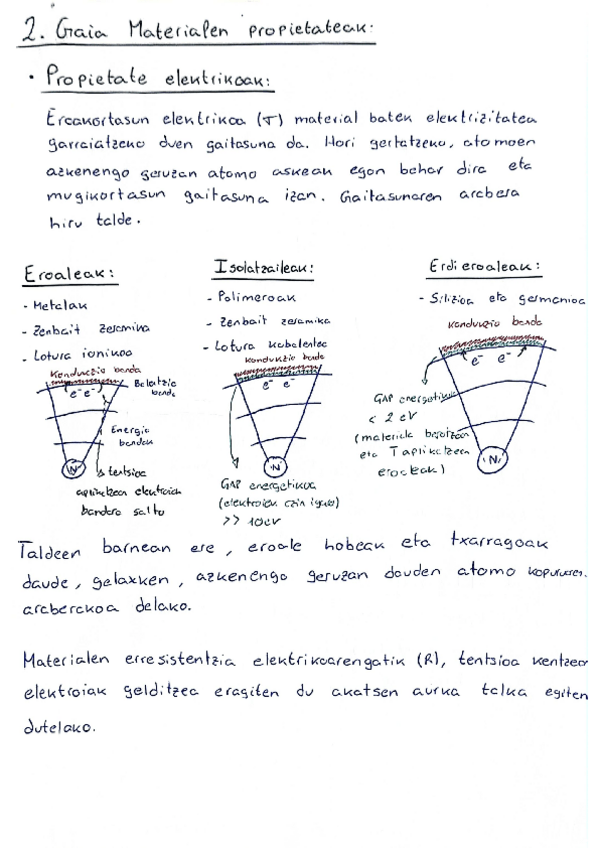 2. Gaia Materialen propietateak:
• Propietate elektrikoak:
Eroankortasun elektrikoa (σ) material baten elektrizitatea
garraiatzeko duen gaitasuna da. Hori gertatzeko, atomoen
azkenengo geruzan atomo askean egon behar dira eta
mugikortasun gaitasuna izan. Gaitasunaren arabera
hiru talde.
Eroaleak:
- Metalak
- Zenbait zeramika
- Lotura ionikoa
Konduczio banda
e⁻ e⁻
Balentzia
banda
Energia
bandak
N
tentsioa
aplikatzean elektroiak
bandara saltu
Isolatzaileak:
- Polimeroak
- Zenbait zeramika
- Lotura kobalentea
Kondukzio banda
e⁻ e⁻
N
GAP energetikoa
(elektroien ezin igaro)
>> 10eV
Erdieroaleak:
- Silizioa eta germanioa
Kondukzio banda
e⁻ e⁻
GAP energetikoa
< 2 eV
(materiala berotzean
eta T aplikatzean
eroaleak)
N
Taldeen barnean ere, eroale hobeak eta txarragoak
daude, gelaxken, azkenengo geruzan dauden atomo kopuruaren
araberakoa delako.
Materialen erresistentzia elektrikoarengatik (R), tentsioa kentzean
elektroiak gelditzea eragiten du akatsen aurka talka egiten
dutelako.